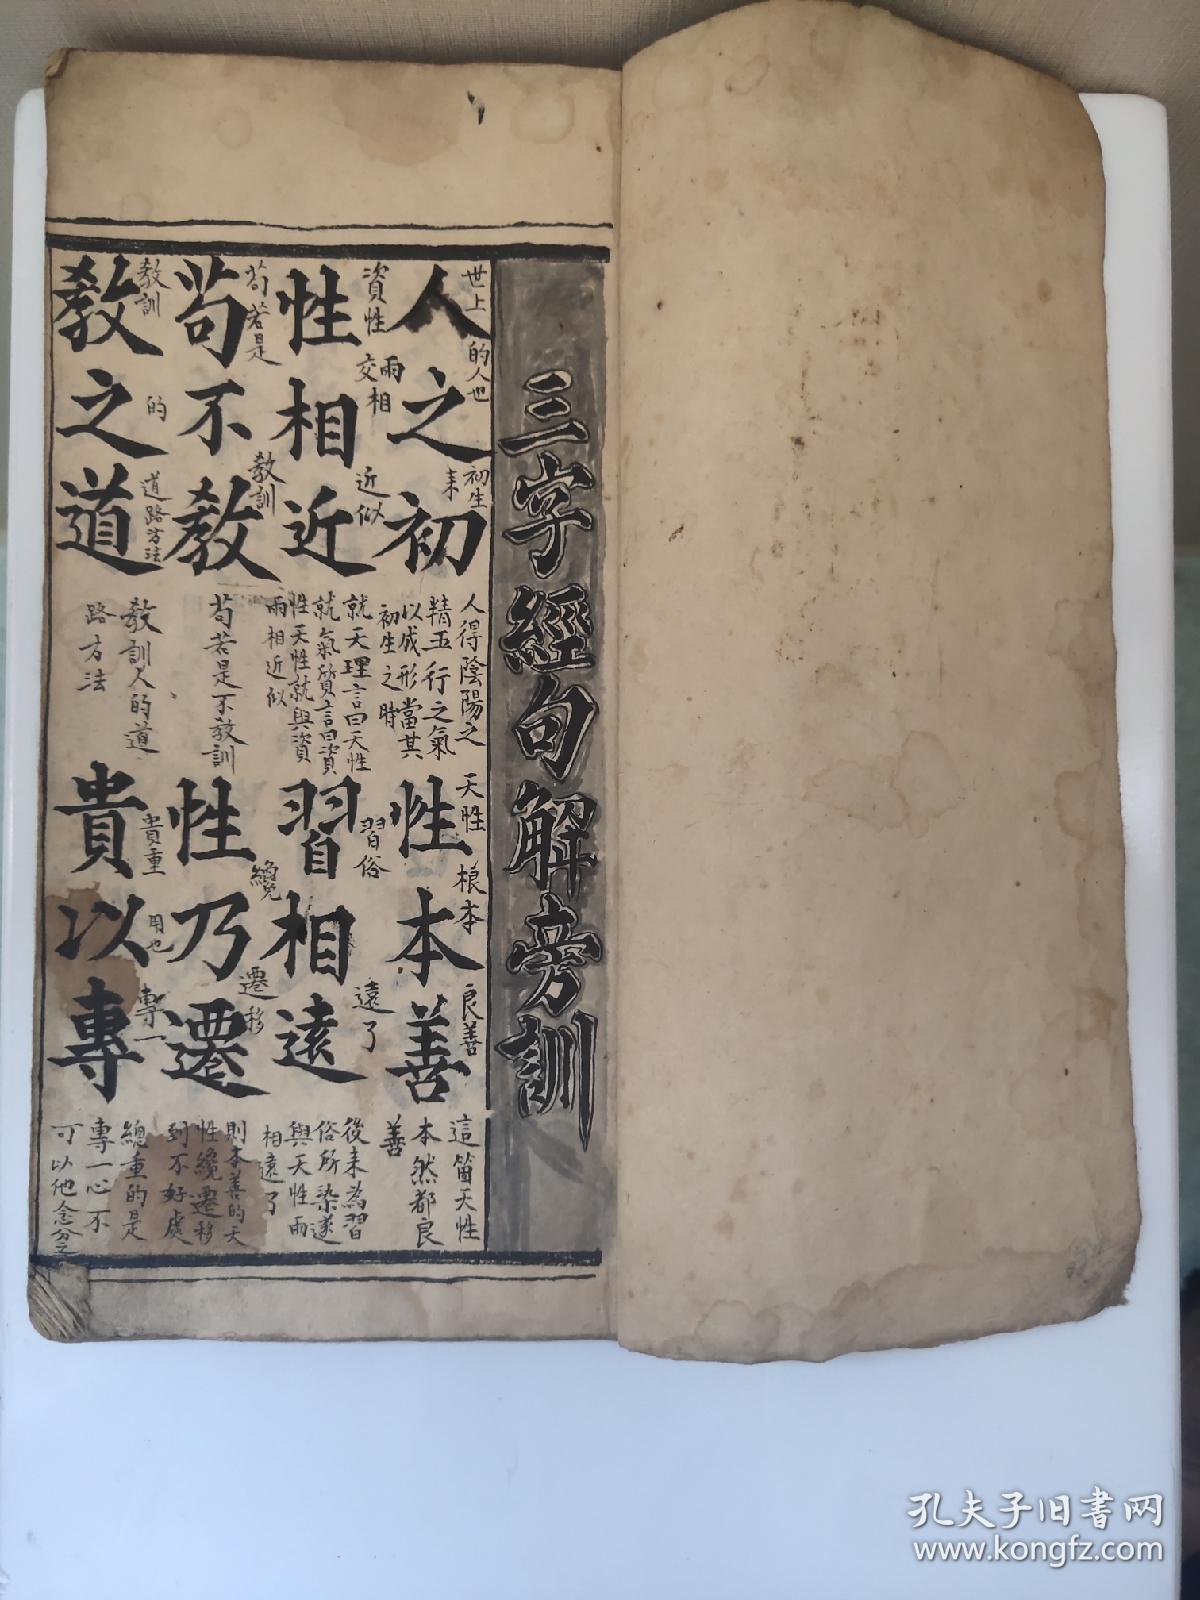 三字經句解旁訓
人之初
世上 的人也 初生來
人得陰陽之
精五行之氣
以成形當其
初生之時
性本善
天性 根本 良善
這箇天性
本然都良
善
性相近
資性 交相 兩相 近似
就天理言曰天性
就氣質言曰資
性天性就與資
兩相近似
習相遠
習俗 遠了
後來為習
俗所染遂
與天性兩
相遠了
苟不教
苟若是 教訓
苟若是不教訓
性乃遷
纔 遷移
則本善的天
性纔遷移
到不好處
教之道
教訓 的 道路方法
教訓人的道
路方法
貴以專
貴重 用也 專一
總重的是
專一心不
可以他念分之
孔夫子旧书网
www.kongfz.com